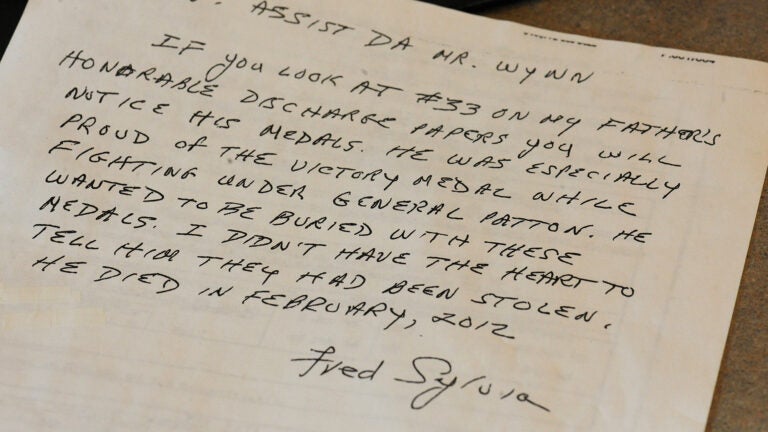 ASSIST DA MR. WYNN
IF YOU LOOK AT #33 ON MY FATHER'S
HONORABLE DISCHARGE PAPERS YOU WILL
NOTICE HIS MEDALS. HE WAS ESPECIALLY
PROUD OF THE VICTORY MEDAL WHILE
FIGHTING UNDER GENERAL PATTON. HE
WANTED TO BE BURIED WITH THESE
MEDALS. I DIDN'T HAVE THE HEART TO
TELL HIM THEY HAD BEEN STOLEN.
HE DIED IN FEBRUARY, 2012
Fred Sylvia